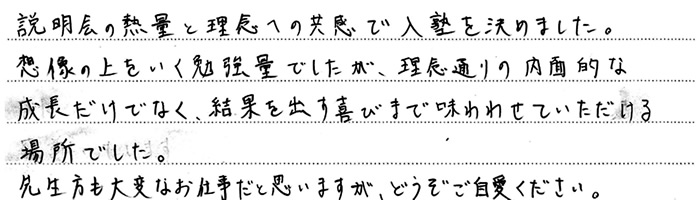 説明会の熱量と理念への共感で入塾を決めました。
想像の上をいく勉強量でしたが、理念通りの内面的な
成長だけでなく、結果を出す喜びまで味わわせていただける
場所でした。
先生方も大変なお仕事だと思いますが、どうぞご自愛ください。